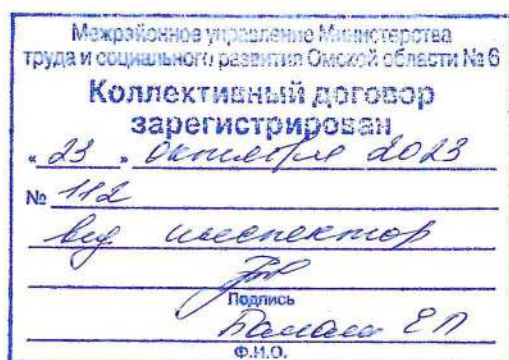 Межрайонное управление Министерства
труда и социального развития Омской области № 6
Коллективный договор
зарегистрирован
« 23 » октября 2023
№ 112
вед инспектор
Подпись
Е П
Ф.И.О.